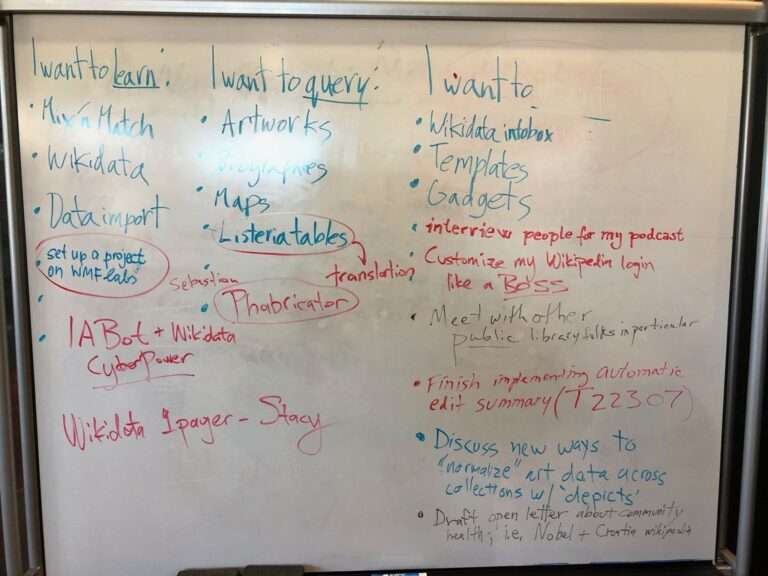 I want to learn:
• Mix'n Match
• Wikidata
• Data import
• set up a project
on WMF labs
•
• IABot + Wikidata
CyberPower
Wikidata 1pager - Stacy
I want to query:
• Artworks
• Biographies
• Maps
• Listeria tables
translation
•
Sebastian
• Phabricator
I want to
• Wikidata infobox
• Templates
• Gadgets
• interview people for my podcast
• Customize my Wikipedia login
like a BOSS
• Meet with other
public library folks in particular
• Finish implementing automatic
edit summary (T22307)
• Discuss new ways to
"normalize" art data across
collections w/ 'depicts'
• Draft open letter about community
health; i.e, Nobel + Croatia wikipedia